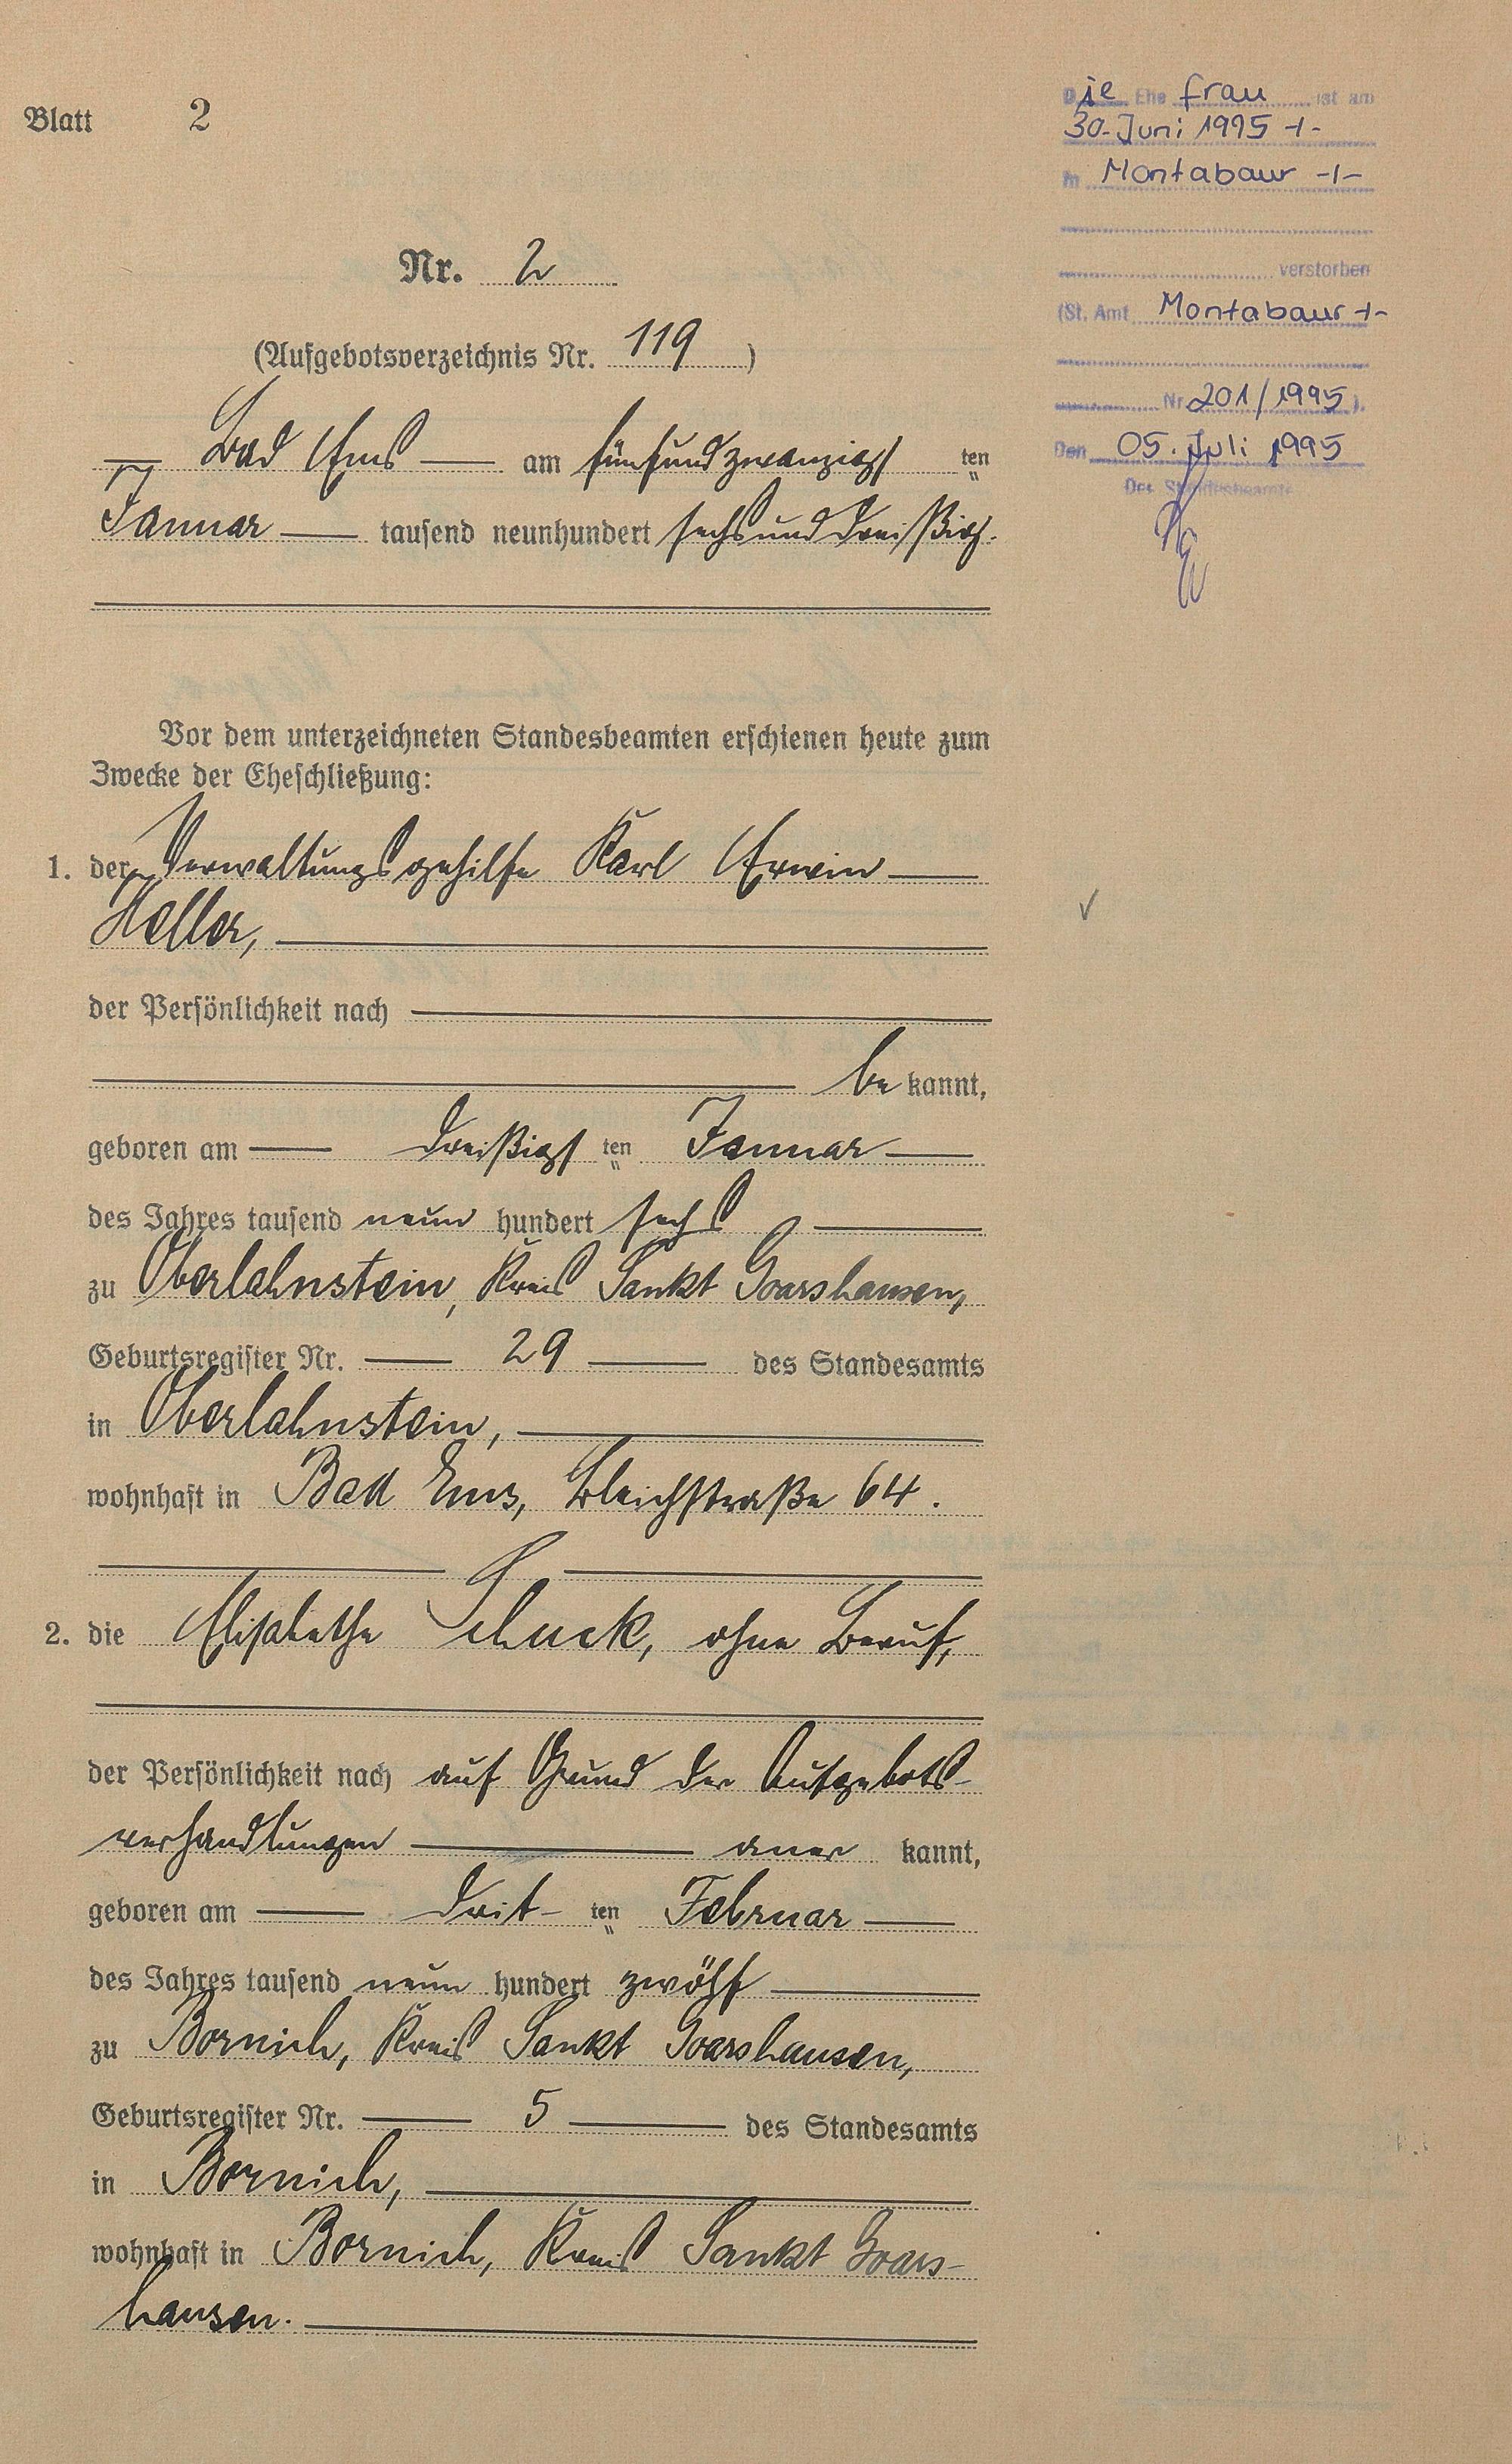 Blatt 2
Nr. 2
(Aufgebotsverzeichnis Nr. 119)
Bad Ems am fünfundzwanzigst ten
Januar tausend neunhundert sechsunddreißig.
Vor dem unterzeichneten Standesbeamten erschienen heute zum
Zwecke der Eheschließung:
1. der Verwaltungsgehilfe Karl Erwin
Heller,
der Persönlichkeit nach
be kannt,
geboren am dreißigst ten Januar
des Jahres tausend neun hundert sechs
zu Oberlahnstein, Kreis Sankt Goarshausen,
Geburtsregister Nr. 29 des Standesamts
in Oberlahnstein,
wohnhaft in Bad Ems, Bleichstraße 64.
2. die Elisabethe Schuck, ohne Beruf,
der Persönlichkeit nach auf Grund der Aufgebots-
verhandlungen aner kannt,
geboren am drit- ten Februar
des Jahres tausend neun hundert zwölf
zu Bornich, Kreis Sankt Goarshausen,
Geburtsregister Nr. 5 des Standesamts
in Bornich,
wohnhaft in Bornich, Kreis Sankt Goars-
hausen.
Die Ehe frau ist am
30. Juni 1995 -/-
in Montabaur -/-
verstorben
(St. Amt Montabaur -/-
Nr. 201/1995).
Den 05. Juli 1995
Der Standesbeamte